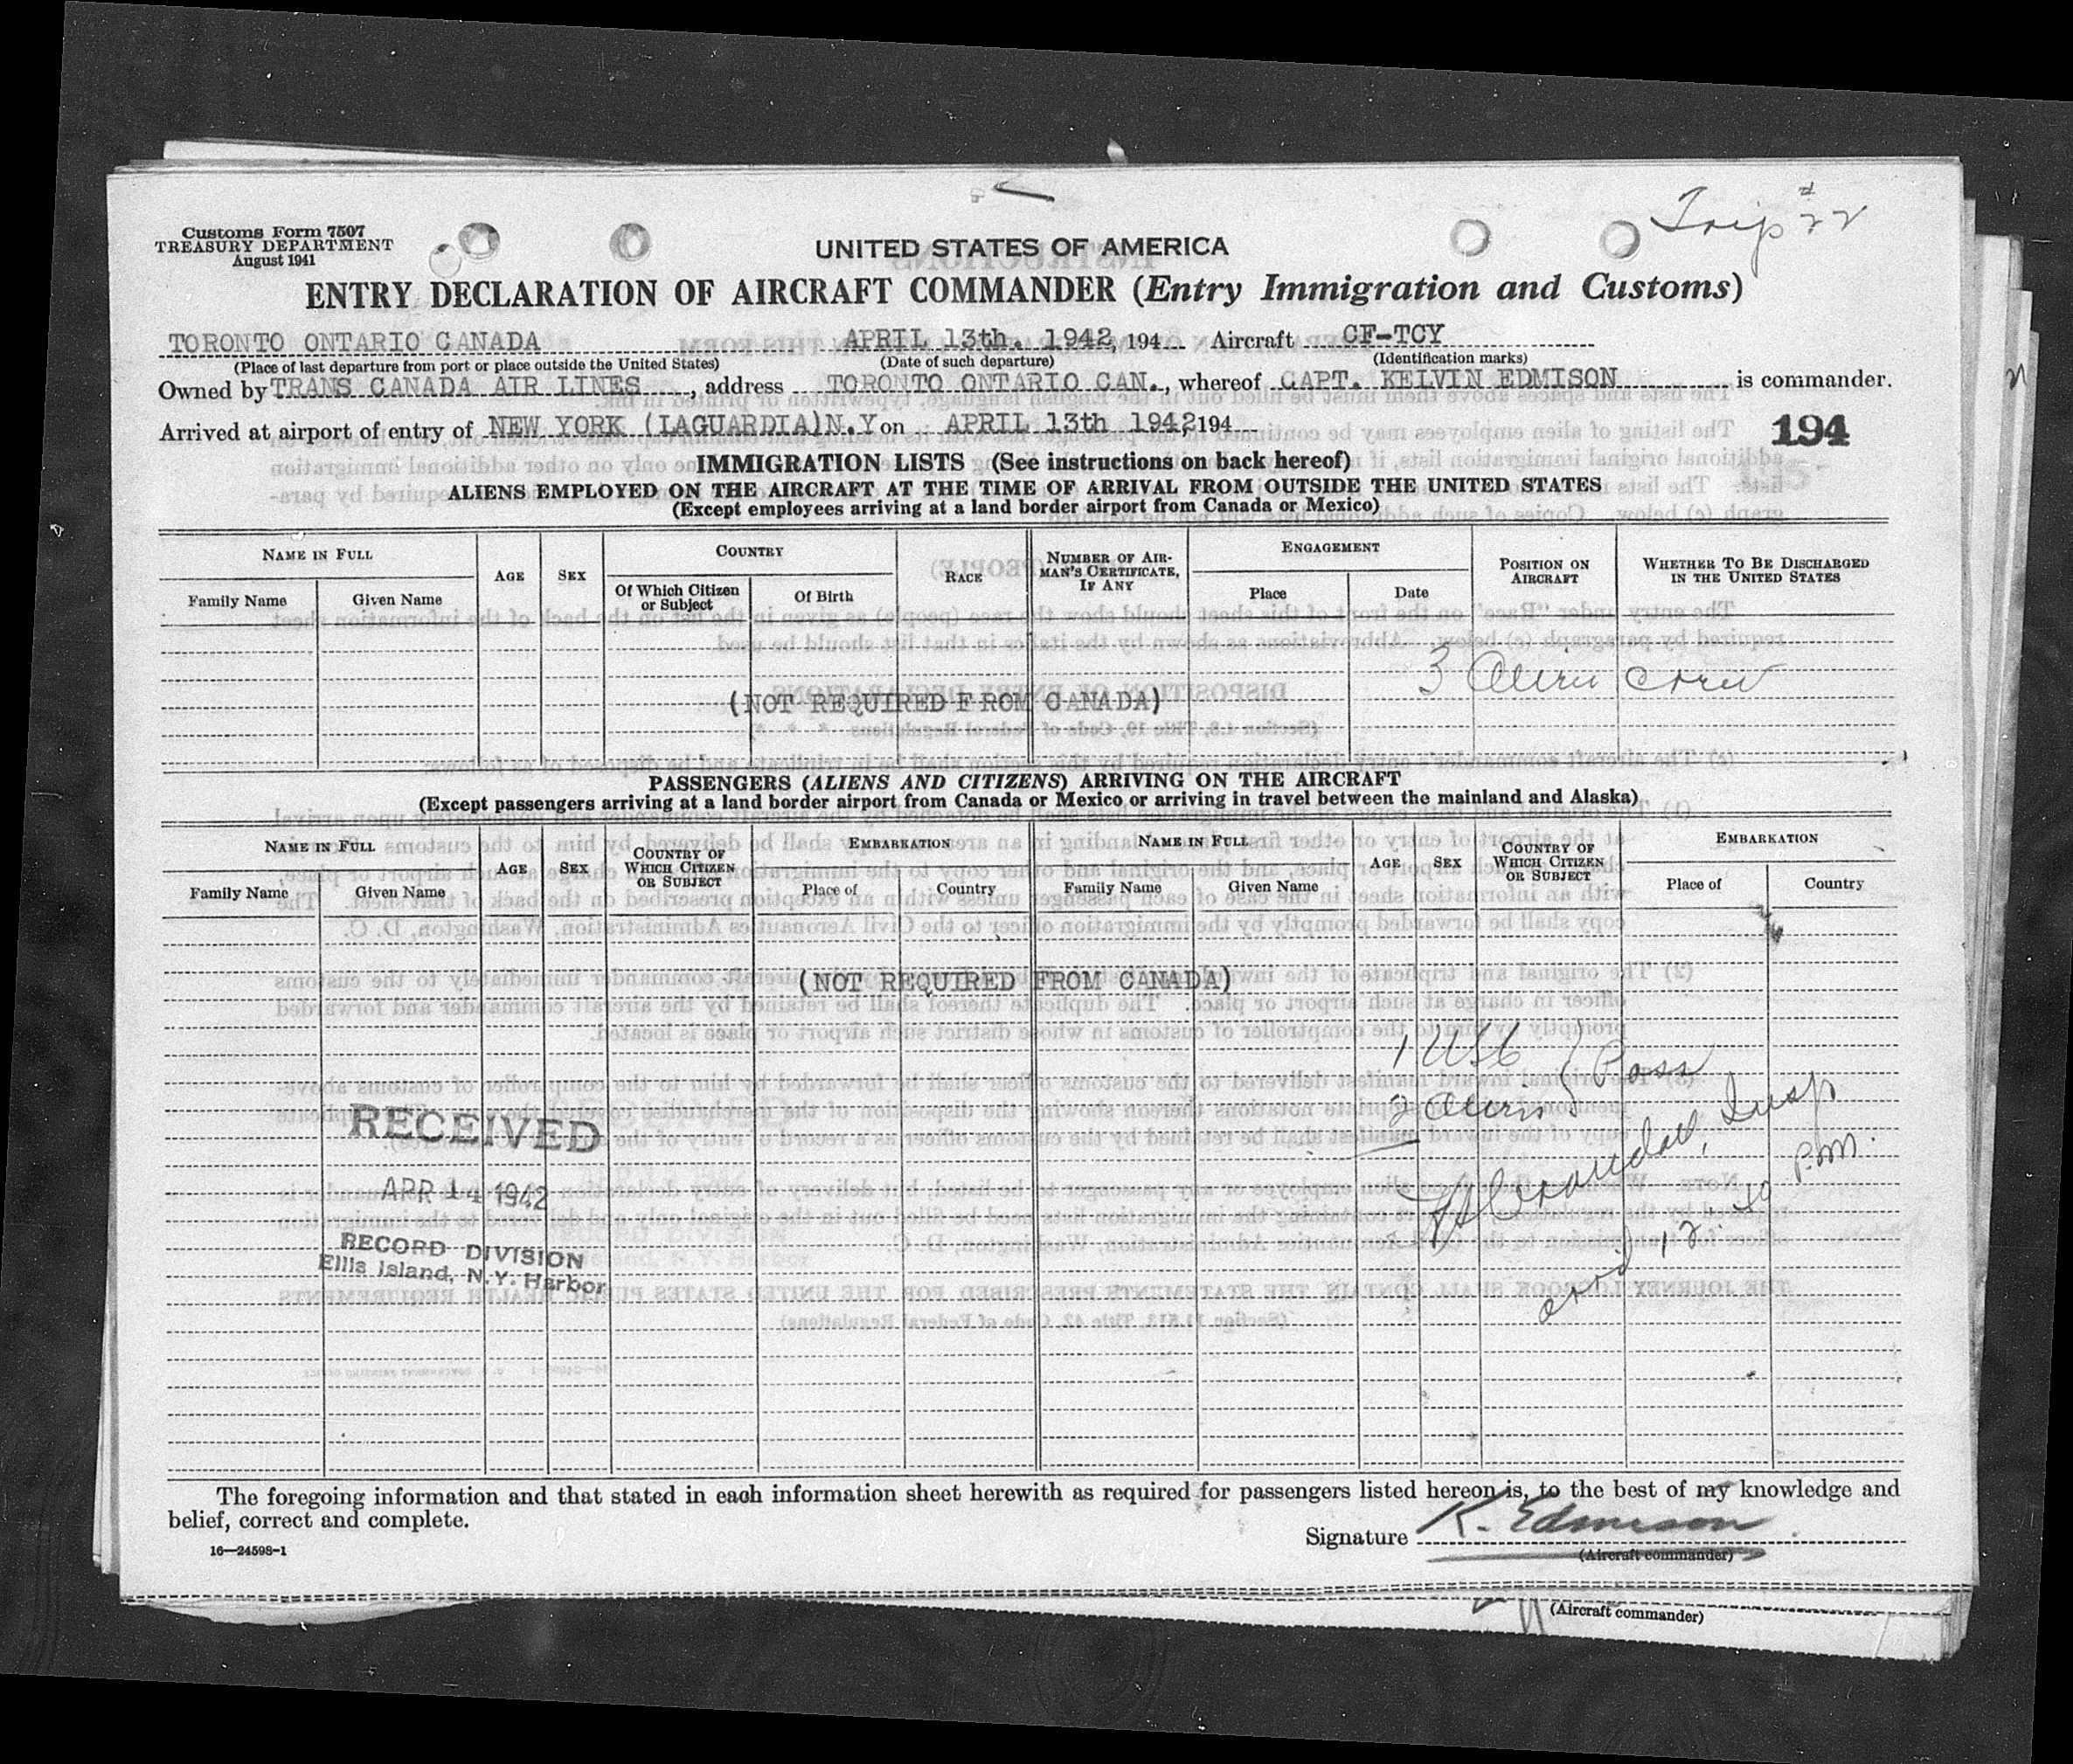 Trip # 22
Customs Form 7507
TREASURY DEPARTMENT
August 1941
UNITED STATES OF AMERICA
ENTRY DECLARATION OF AIRCRAFT COMMANDER (Entry Immigration and Customs)
TORONTO ONTARIO CANADA APRIL 13th. 1942, 194 Aircraft CF-TCY
(Place of last departure from port or place outside the United States) (Date of such departure) (Identification marks)
Owned by TRANS CANADA AIR LINES, address TORONTO ONTARIO CAN., whereof CAPT. KELVIN EDMISON is commander.
Arrived at airport of entry of NEW YORK (LAGUARDIA)N.Y on APRIL 13th 1942, 194
194
IMMIGRATION LISTS (See instructions on back hereof)
ALIENS EMPLOYED ON THE AIRCRAFT AT THE TIME OF ARRIVAL FROM OUTSIDE THE UNITED STATES
(Except employees arriving at a land border airport from Canada or Mexico)
NAME IN FULL AGE SEX COUNTRY RACE NUMBER OF AIRMAN'S CERTIFICATE, IF ANY ENGAGEMENT POSITION ON AIRCRAFT WHETHER TO BE DISCHARGED IN THE UNITED STATES
Family Name Given Name Of Which Citizen or Subject Of Birth Place Date
3 Alien crew
(NOT REQUIRED FROM CANADA)
PASSENGERS (ALIENS AND CITIZENS) ARRIVING ON THE AIRCRAFT
(Except passengers arriving at a land border airport from Canada or Mexico or arriving in travel between the mainland and Alaska)
NAME IN FULL AGE SEX COUNTRY OF WHICH CITIZEN OR SUBJECT EMBARKATION NAME IN FULL AGE SEX COUNTRY OF WHICH CITIZEN OR SUBJECT EMBARKATION
Family Name Given Name Place of Country Family Name Given Name Place of Country
(NOT REQUIRED FROM CANADA)
1 USC } Pass
2 Alien
Crandall, Insp
arrd 12:40 P.M.
RECEIVED
APR 14 1942
RECORD DIVISION
Ellis Island, N.Y. Harbor
The foregoing information and that stated in each information sheet herewith as required for passengers listed hereon is, to the best of my knowledge and
belief, correct and complete.
Signature K. Edmison
(Aircraft commander)
16—24598-1
(Aircraft commander)